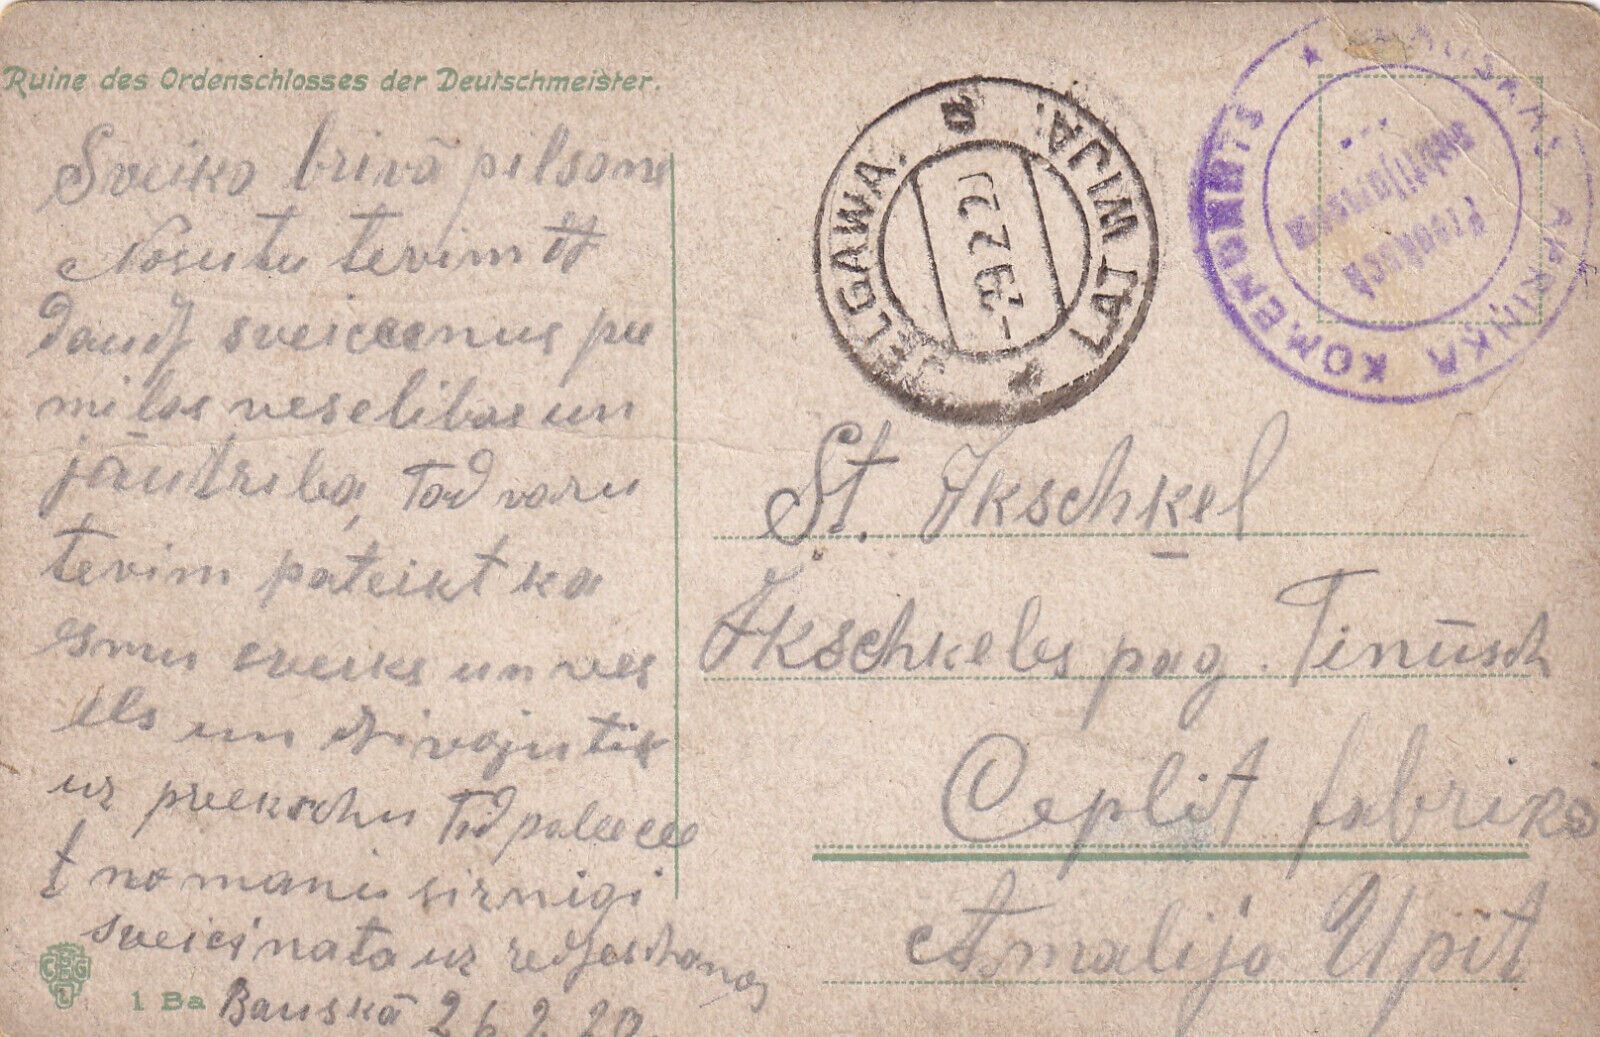 Ruine des Ordenschlosses der Deutschmeister.
Sveika brivā pilsone
Nosutu tevim tt
Daudz sveiceenus pee
milas veselibas un
jāutriba, Tad varu
tevim pateikt ka
esmu sveiks un ves
els un dzivoju tik
uz preekschu Tad paleecee
t no manis sirnigi
sveicinata uz redzeschanos
Bauskā 26.2.20.
CEGL
1 Ba
JELGAWA. LATWIJA.
29.2.2
BAUSKAS APRIŅĶA KOMENDANTS
St. Ikschkel
Ikschkeles pag. Tinūsch
Ceplit fabrika
Amalija Upit